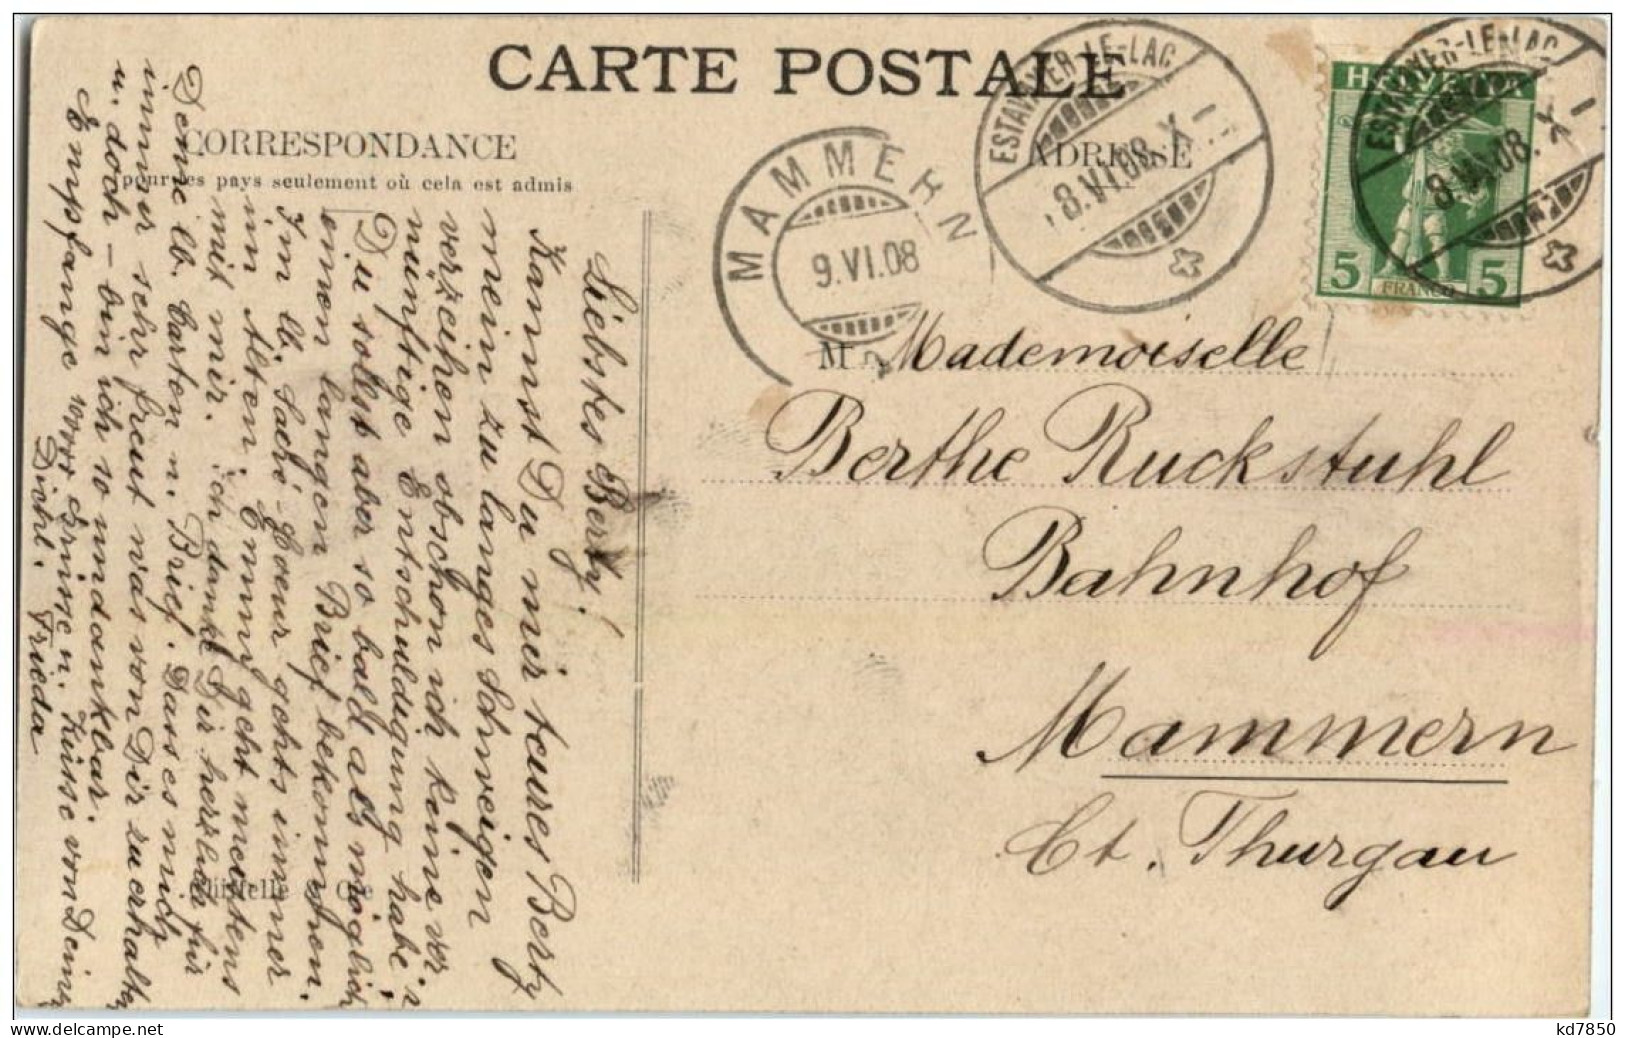 CARTE POSTALE
CORRESPONDANCE
pour les pays seulement où cela est admis
ADRESSE
ESTAVAYER-LE-LAC
8.VI.08.X-
ESTAVAYER-LE-LAC
8.VI.08.X-
MAMMERN
9.VI.08
HELVETIA
5
FRANCO
5
M
Mademoiselle
Berthe Ruckstuhl
Bahnhof
Mammern
Ct. Thurgau
Liebstes Berty!
Kannst Du mir teures Berty
mein zu langes Schweigen
verzeihen obschon ich keine ver-
nünftige Entschuldigung habe;
Du sollst aber so bald als möglich
einen langen Brief bekommen.
Im lb. Sacré-Coeur gehts immer
im Alten; Emmy geht meistens
mit mir. Ich danke Dir herzlich für
Deine lb. Carten n. Brief. Dass es mich
immer sehr freut was von Dir zu erhalten
u. doch - bin ich so undankbar.
Empfange Grüsse u. Küsse von Deiner
Dichl. Frieda
kd7850